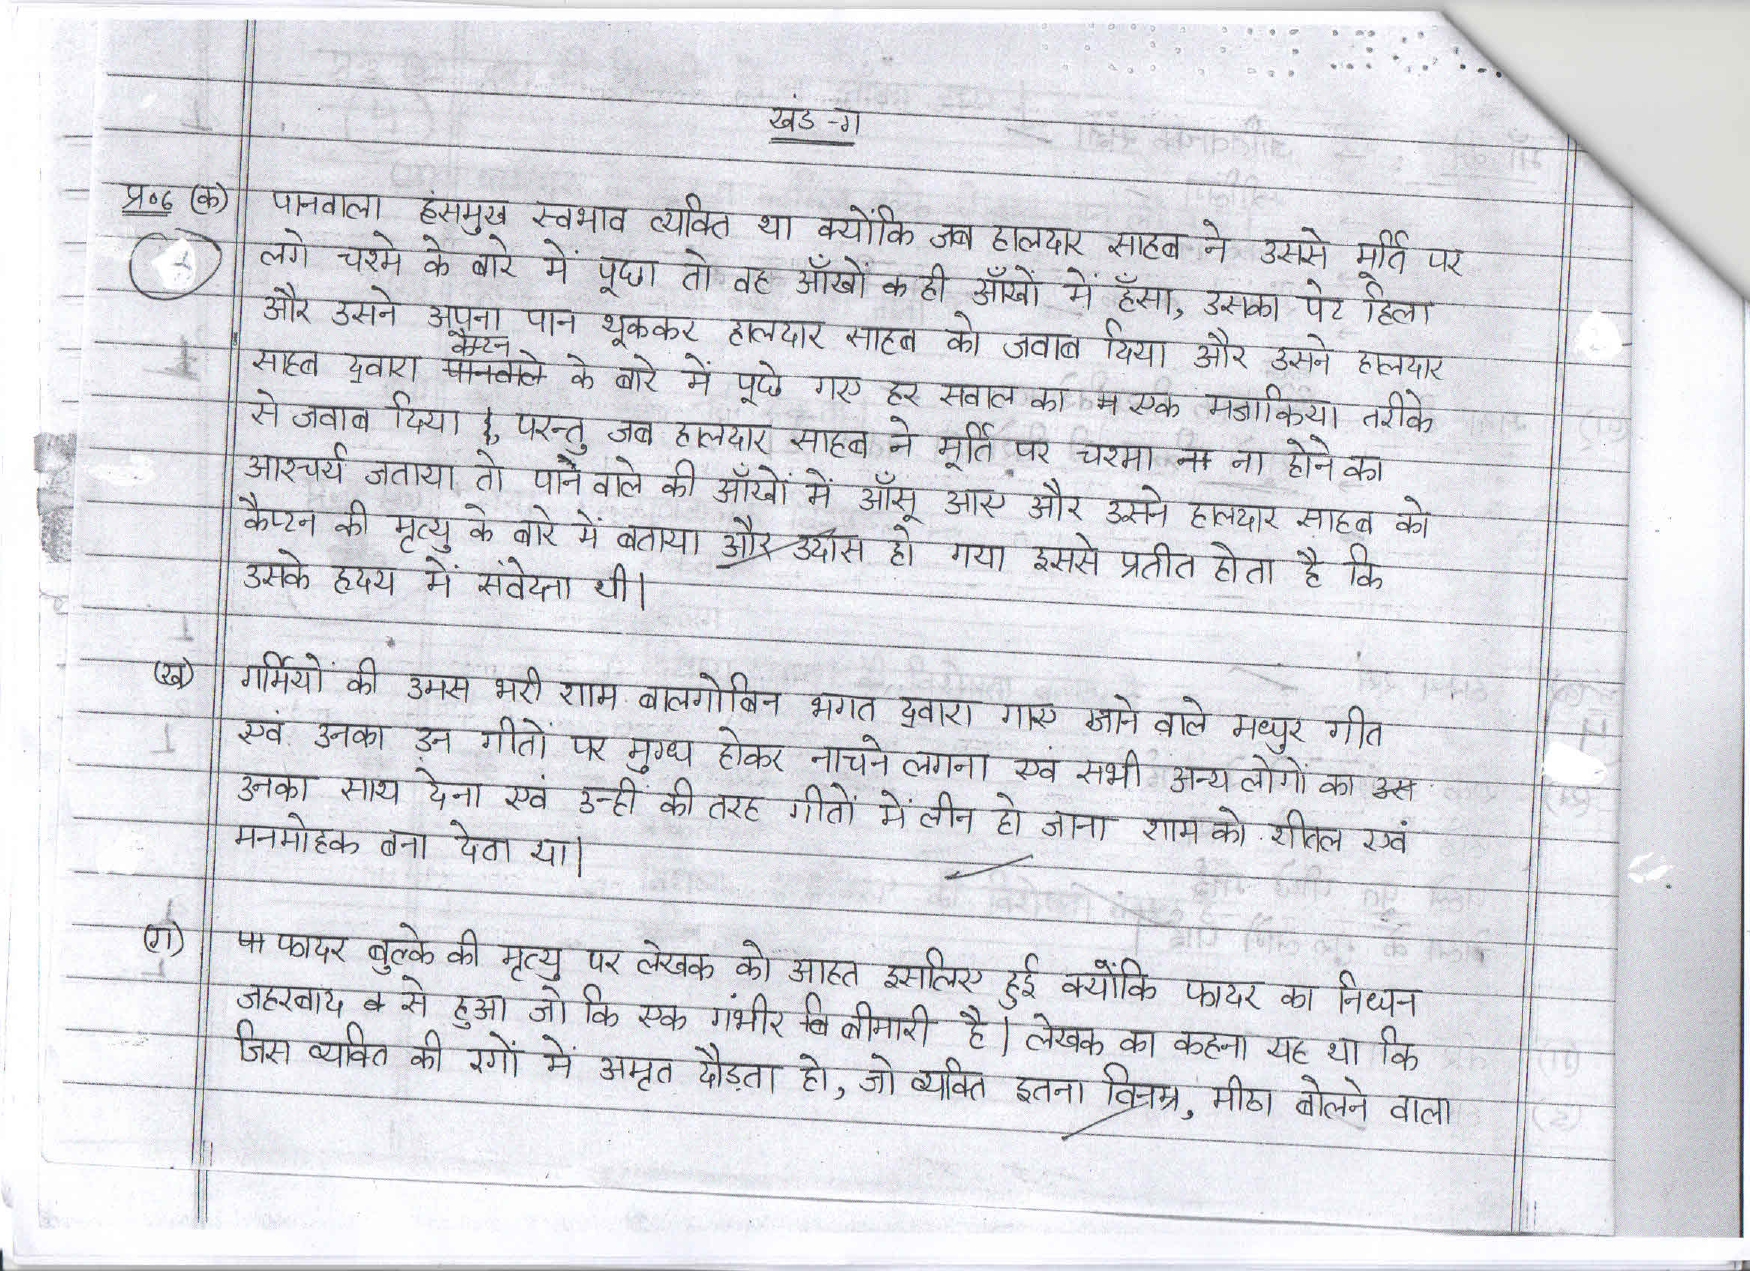 खंड -ग
प्र०6 (क) पानवाला हंसमुख स्वभाव व्यक्ति था क्योंकि जब हालदार साहब ने उससे मूर्ति पर
लगे चश्मे के बारे में पूछा तो वह आँखों क ही आँखों में हँसा, उसका पेट हिला
और उसने अपना पान थूककर हालदार साहब को जवाब दिया और उसने हालदार
साहब द्वारा कैप्टन के बारे में पूछे गए हर सवाल का एक मजाकिया तरीके
से जवाब दिया, परन्तु जब हालदार साहब ने मूर्ति पर चश्मा ना होने का
आश्चर्य जताया तो पानेवाले की आँखों में आँसू आए और उसने हालदार साहब को
कैप्टन की मृत्यु के बारे में बताया और उदास हो गया इससे प्रतीत होता है कि
उसके हृदय में संवेदना थी।
(ख) गर्मियों की उमस भरी शाम बालगोबिन भगत द्वारा गाए जाने वाले मधुर गीत
एवं उनका उन गीतों पर मुग्ध होकर नाचने लगना एवं सभी अन्य लोगों का
उनका साथ देना एवं उन्हीं की तरह गीतों में लीन हो जाना शाम को शीतल एवं
मनमोहक बना देता था।
(ग) फादर बुल्के की मृत्यु पर लेखक को आहत इसलिए हुई क्योंकि फादर का निधन
जहरबाद से हुआ जो कि एक गंभीर बीमारी है। लेखक का कहना यह था कि
जिस व्यक्ति की रगों में अमृत दौड़ता हो, जो व्यक्ति इतना विनम्र, मीठा बोलने वाला